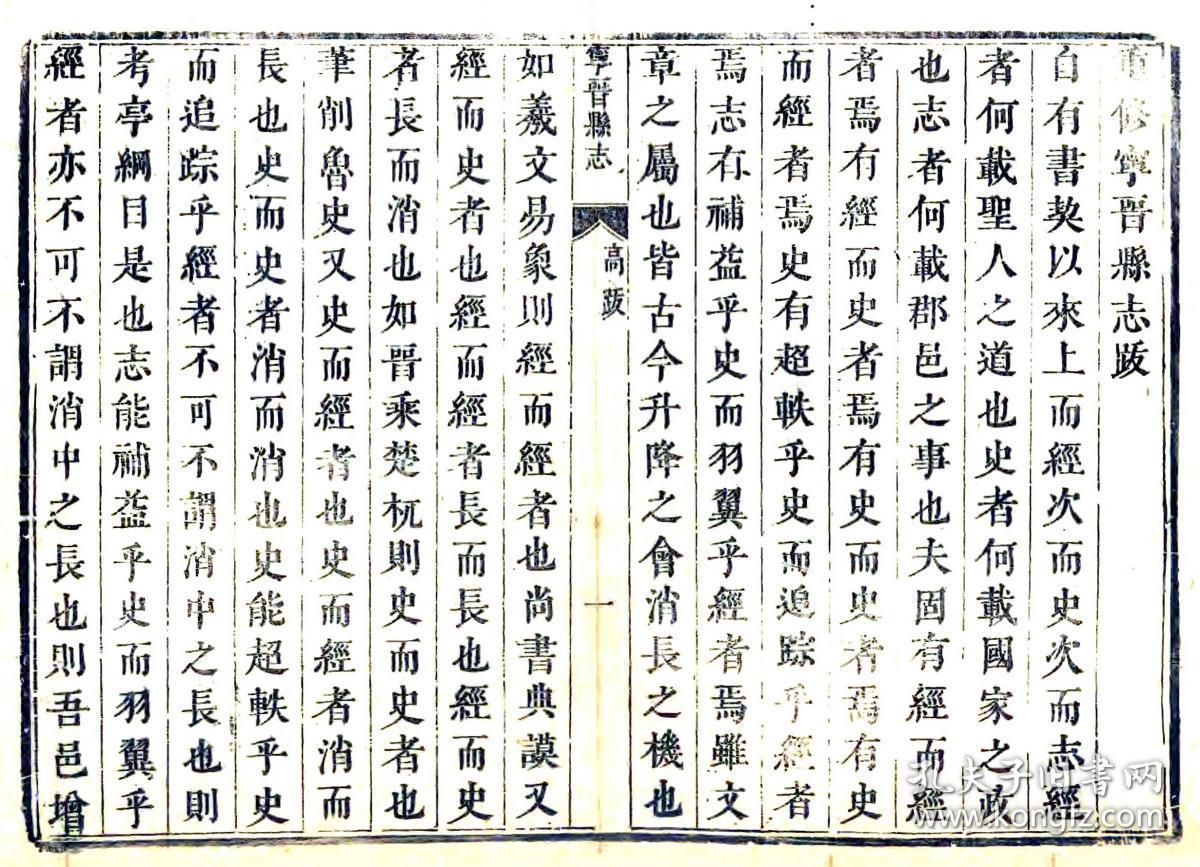 重修寧晉縣志跋
自有書契以來上而經次而史次而志經
者何載聖人之道也史者何載國家之政
也志者何載郡邑之事也夫固有經而經
者焉有經而史者焉有史而史者焉有史
而經者焉史有超軼乎史而追踪乎經者
焉志有補益乎史而羽翼乎經者焉雖文
章之屬也皆古今升降之會消長之機也
寧晉縣志
高跋
一
如羲文易象則經而經者也尚書典謨又
經而史者也經而經者長而長也經而史
者長而消也如晉乘楚杌則史而史者也
筆削魯史又史而經者也史而經者消而
長也史而史者消而消也史能超軼乎史
而追踪乎經者不可不謂消中之長也則
考亭綱目是也志能補益乎史而羽翼乎
經者亦不可不謂消中之長也則吾邑增
孔夫子旧書网
www.kongfz.com